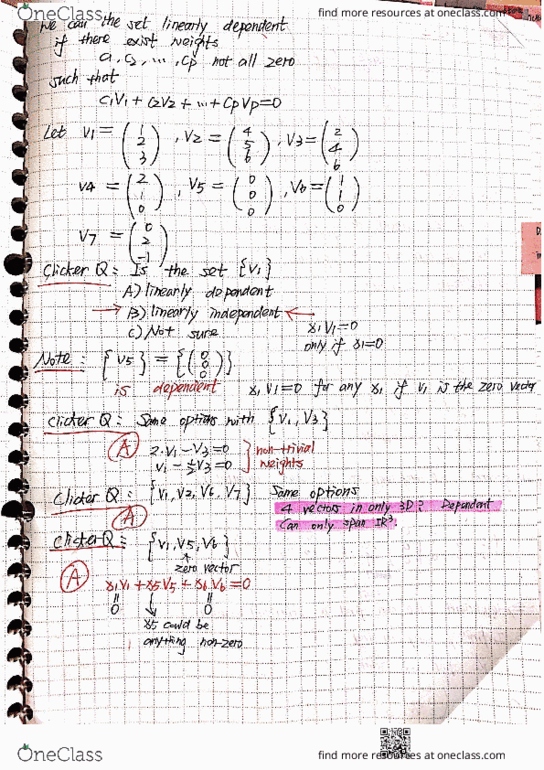 OneClass
find more resources at oneclass.com
we call the set linearly dependent
if there exist weights
c1, c2, ..., cp not all zero
such that
c1V1 + c2V2 + ... + cpVp=0
Let V1= (1 2 3), V2 = (4 5 6), V3= (2 4 6)
V4 = (2 1 0), V5 = (0 0 0), V6= (1 1 0)
V7 = (0 2 -1)
Clicker Q: Is the set {V1}
A) linearly dependent
→ B) linearly independent ←
C) Not sure
x1V1=0
only if x1=0
Note: {V5} = {(0 0 0)}
is dependent x1V1=0 for any x1 if V1 is the zero vector
Clicker Q: Same options with {V1, V3}
A 2·V1-V3=0
V1-½V3=0
non-trivial
weights
Clicker Q: {V1, V2, V6, V7} Same options
A
4 vectors in only 3D? Dependent
Can only span IR³.
Clicker Q: {V1, V5, V6}
zero vector
A x1V1+x5V5+x6V6=0
0 0
x5 could be
anything non-zero
OneClass
find more resources at oneclass.com